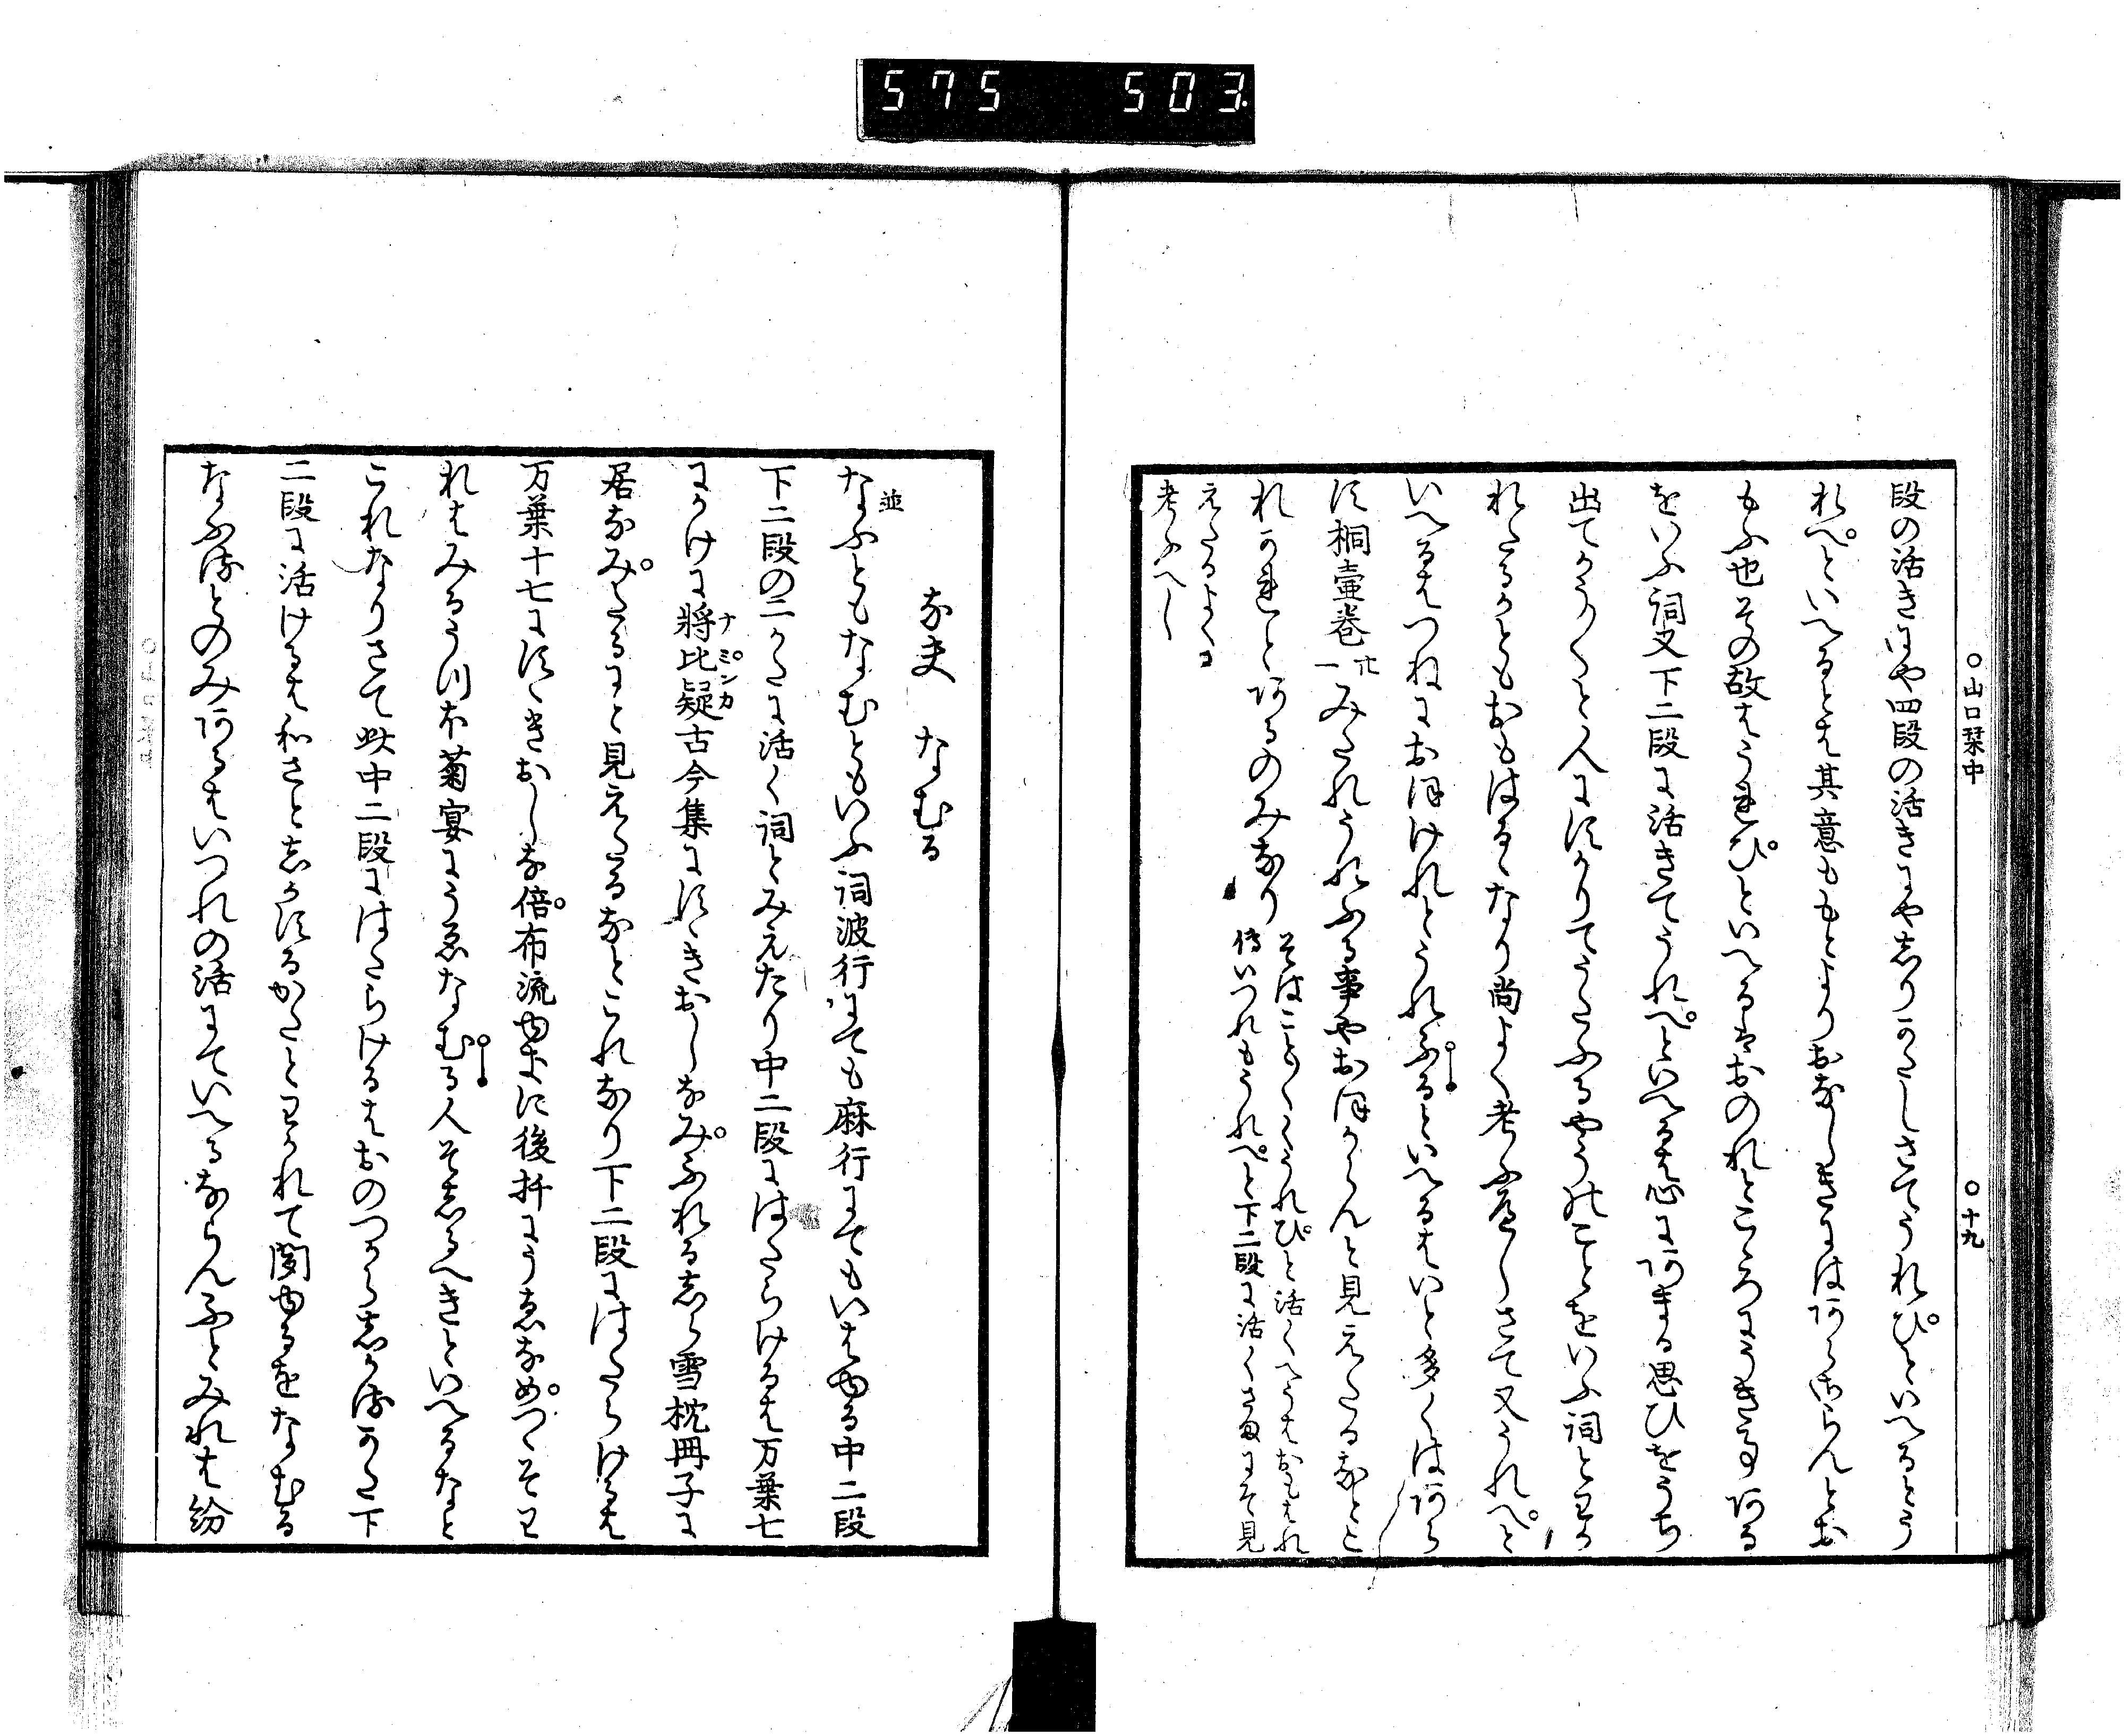 575 503
○山口栞中 ○十九
段の活きにや四段の活きにや志りかたしさてうれびといへるとう
れべといへるとは其意ももとよりおなしきにはあらさらんとお
もふ也その故はうれびといへるはおのれところにうき事ある
をいふ詞又下二段に活きてうれべといへるは心にあまる思ひをうち
出てかう〳〵と人にすかりてうたふるやうのことをいふ詞とわか
れたるかともおもはるゝなり尚よく考ふべしさて又うれべと
いへるはつねにおほけれとうれふるといへるはいと多くはあら
す桐壷巻廿一みたれうれふる事やおほからんと見えたるなとこ
れかれとあるのみなり
そはこと〳〵くうれびと活く
傳いつれもうれべと下二段に活くさまにそ見
えたるよくよ
考ふへし
なふ なむる
なふともなむともいふ詞波行にても麻行にてもいはゆる中二段
並
下二段の二かたに活く詞とみえたり中二段にはたらけるは万葉七
にかけに將比疑古今集にすゝきおしなみふれる志ら雪枕冊子に
ナミンカ
居なみたるにと見えたるなとこれなり下二段にはたらけるは
万葉十七にすゝきおしな倍布流由伎に後拾にうゑなめつゝそわ
れはみるうつほ菊宴にうゑなむる人そ志るへきといへるなと
これなりさて此中二段にはたらけるはおのつから志かすかた下
二段に活けるは和さと志かするかたとわかれて聞ゆるをなむる
なふるとのみあるはいつれの活にていへるならんふとみれは紛